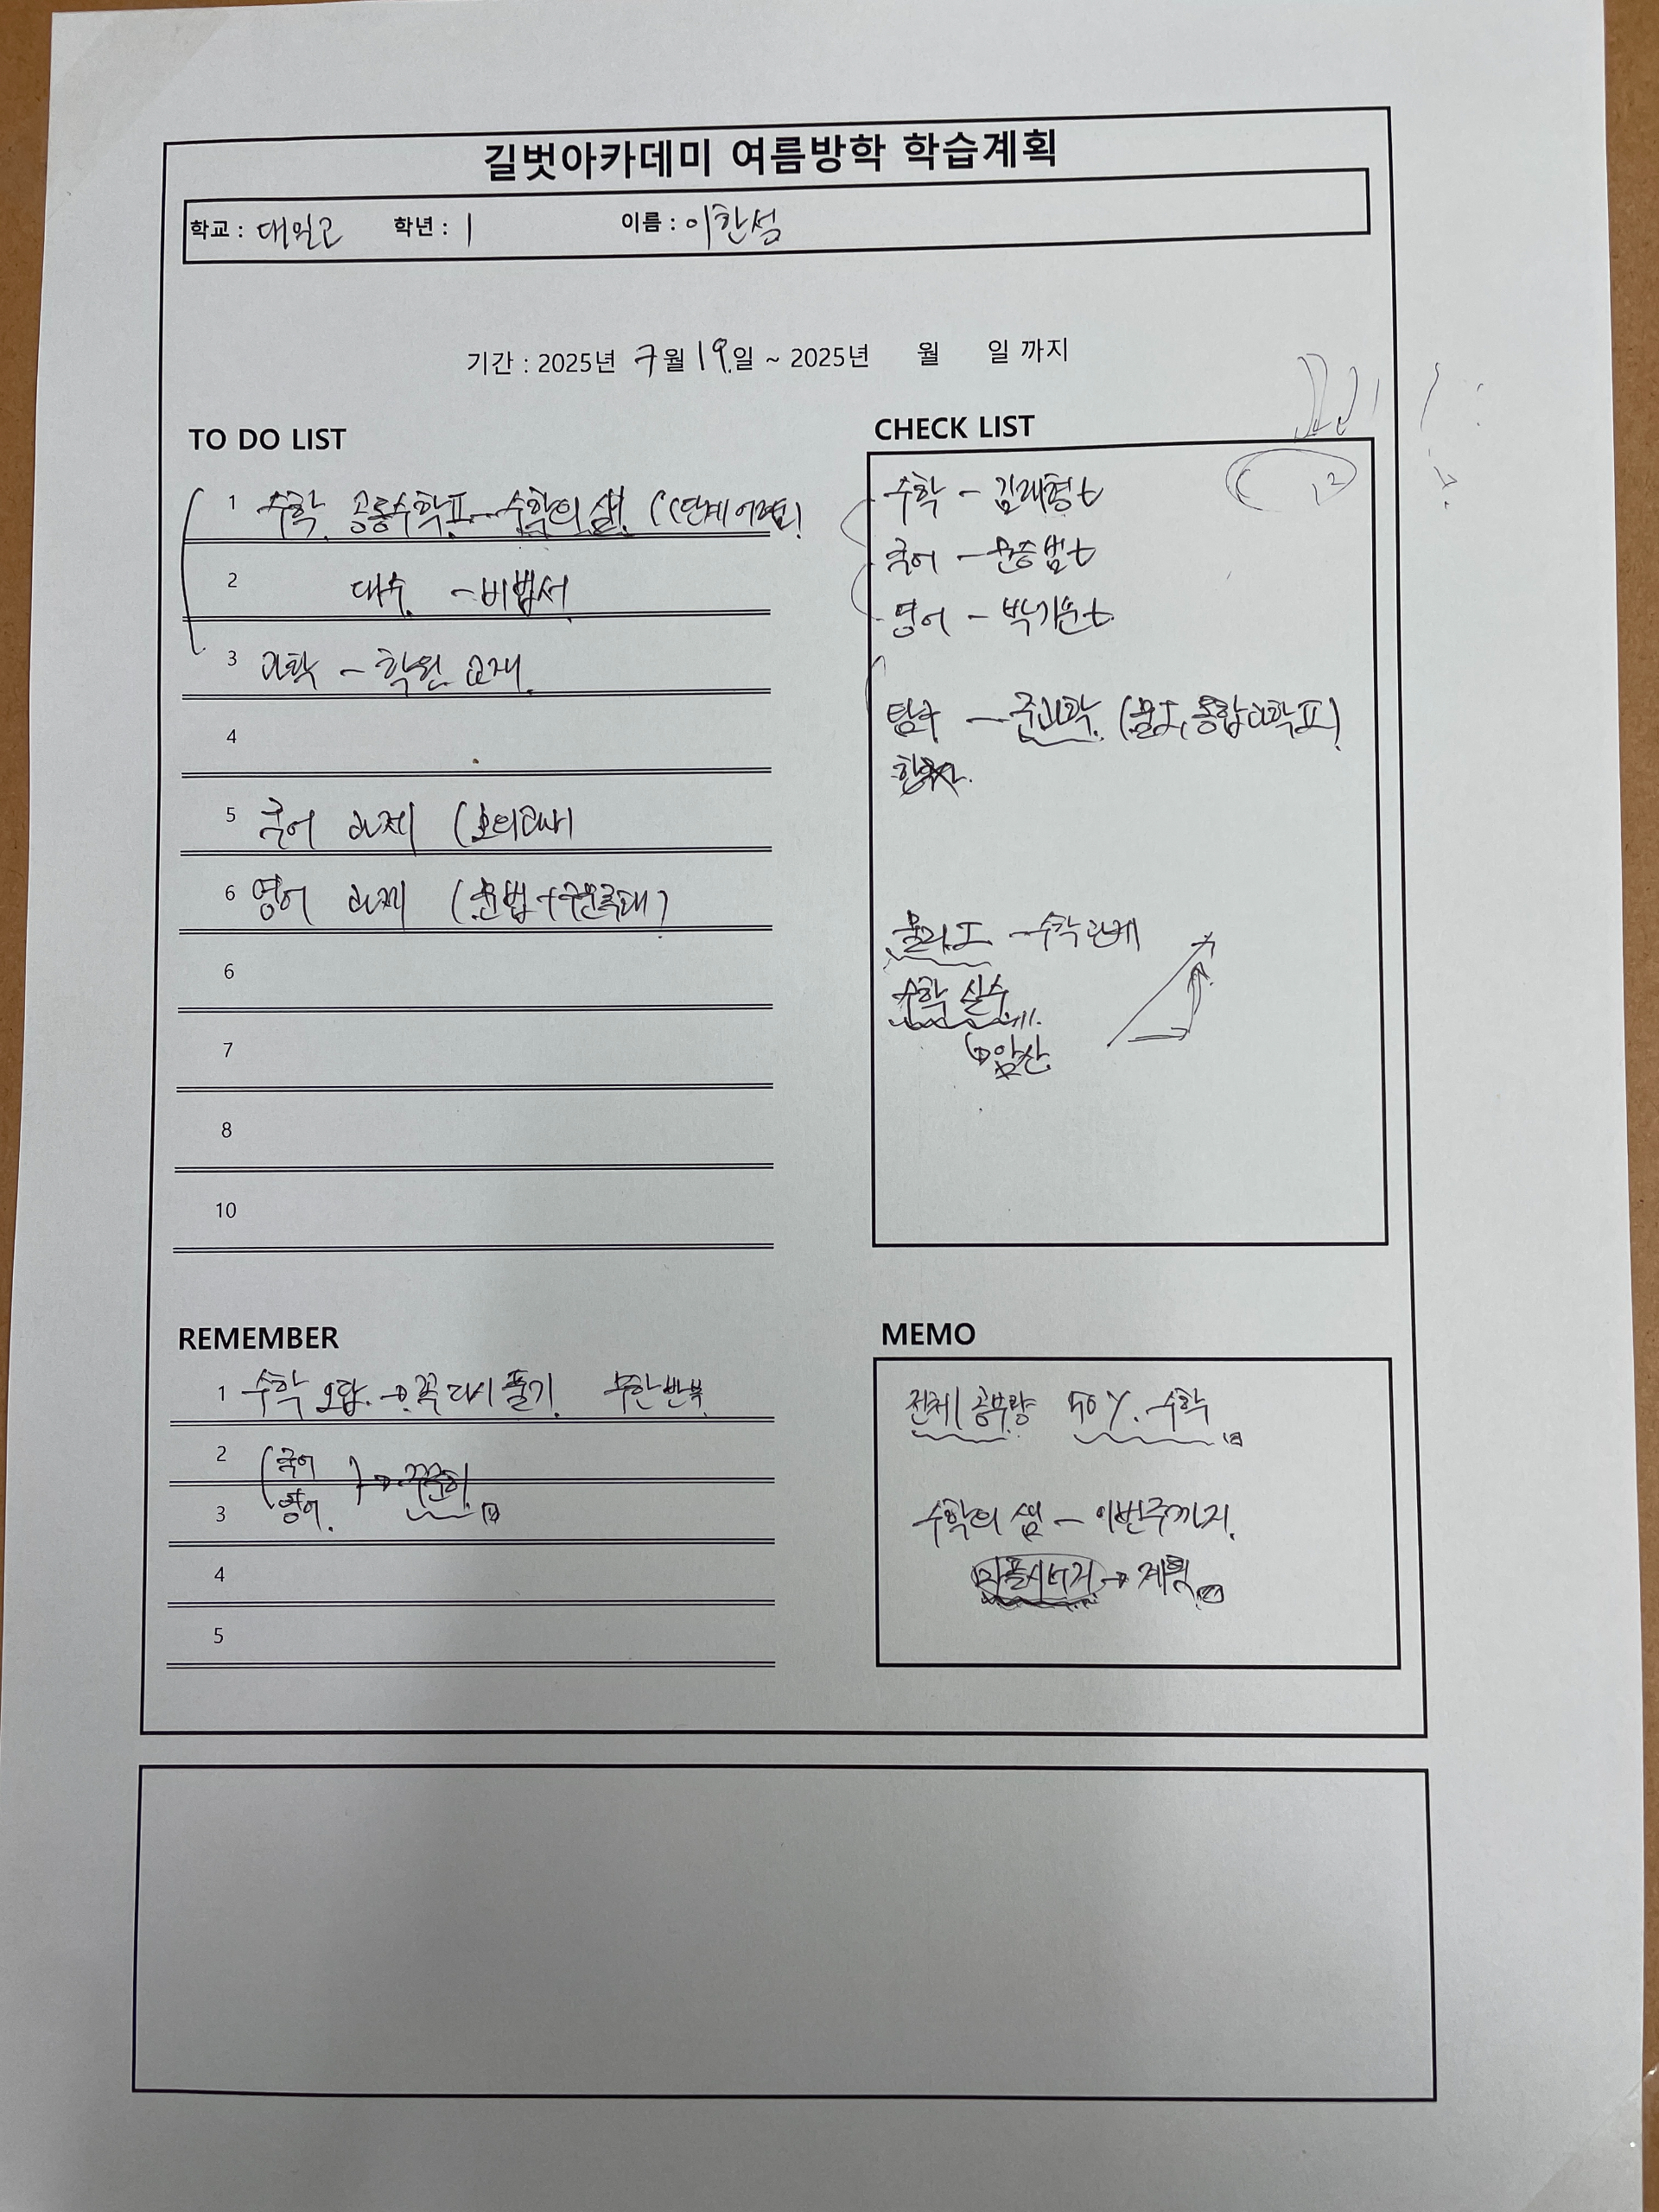 길벗아카데미 여름방학 학습계획
학교 : 대일고 학년 : 1 이름 : 이찬섬
기간 : 2025년 7월 19일 ~ 2025년 월 일 까지
TO DO LIST
1 수학 공통수학II - 수학의 샘
2 대수 - 비법서
3 과학 - 학원 교재
4
5 국어 과제 (모의고사)
6 영어 과제 (문법+구문독해)
6
7
8
10
CHECK LIST
수학 - 김래형t
국어 - 문승범t
영어 - 박기문t
탐구 - 준과학 (물I, 통합과학II)
물리I - 수학관계
수학 실수
암산
REMEMBER
1 수학 오답 → 꼭 다시 풀기 무한반복
2 국어
3 영어 → 꾸준히
4
5
MEMO
전체 공부량 50%. 수학
수학의 샘 - 이번주까지
→ 계획